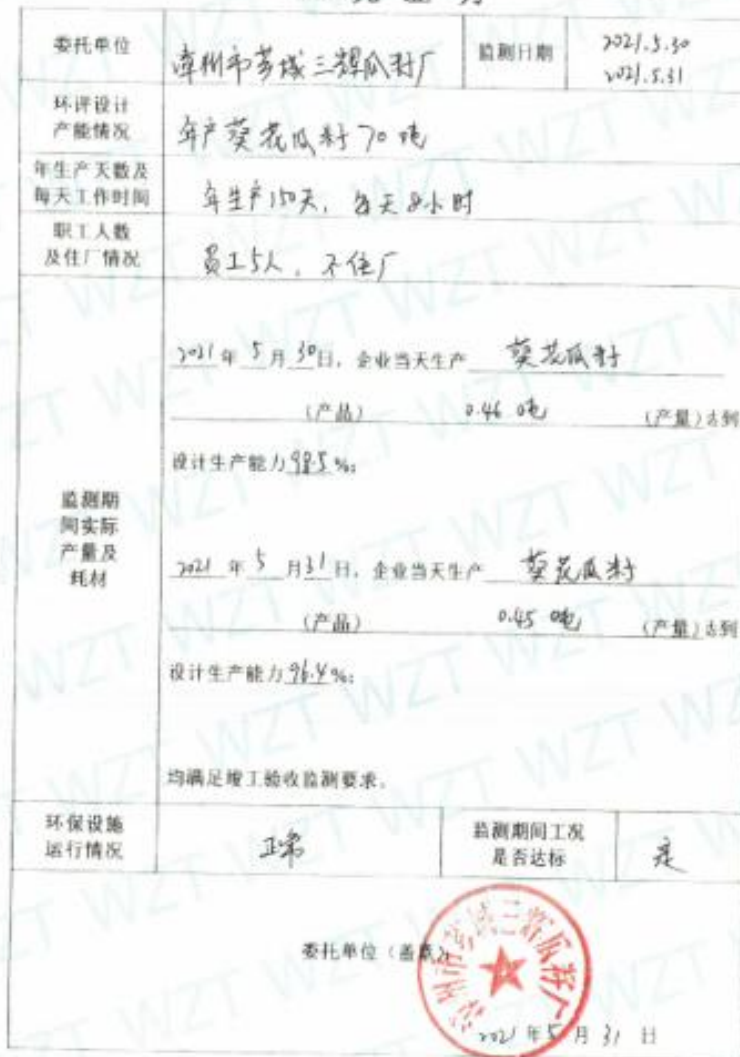 委托单位
漳州市芗城三辉瓜籽厂
监测日期
2021.5.30
2021.5.31
环评设计
产能情况
年产葵花瓜籽70吨
年生产天数及
每天工作时间
年生产150天,每天8小时
职工人数
及住厂情况
员工5人,不住厂
监测期
间实际
产量及
耗材
2021年5月30日,企业当天生产 葵花瓜籽
(产品) 0.46吨 (产量)达到
设计生产能力98.5%;
2021年5月31日,企业当天生产 葵花瓜籽
(产品) 0.45吨 (产量)达到
设计生产能力96.4%;
均满足竣工验收监测要求。
环保设施
运行情况
正常
监测期间工况
是否达标
是
委托单位(盖章)
漳州市芗城三辉瓜籽厂
2021年5月31日
WZT WZT WZT